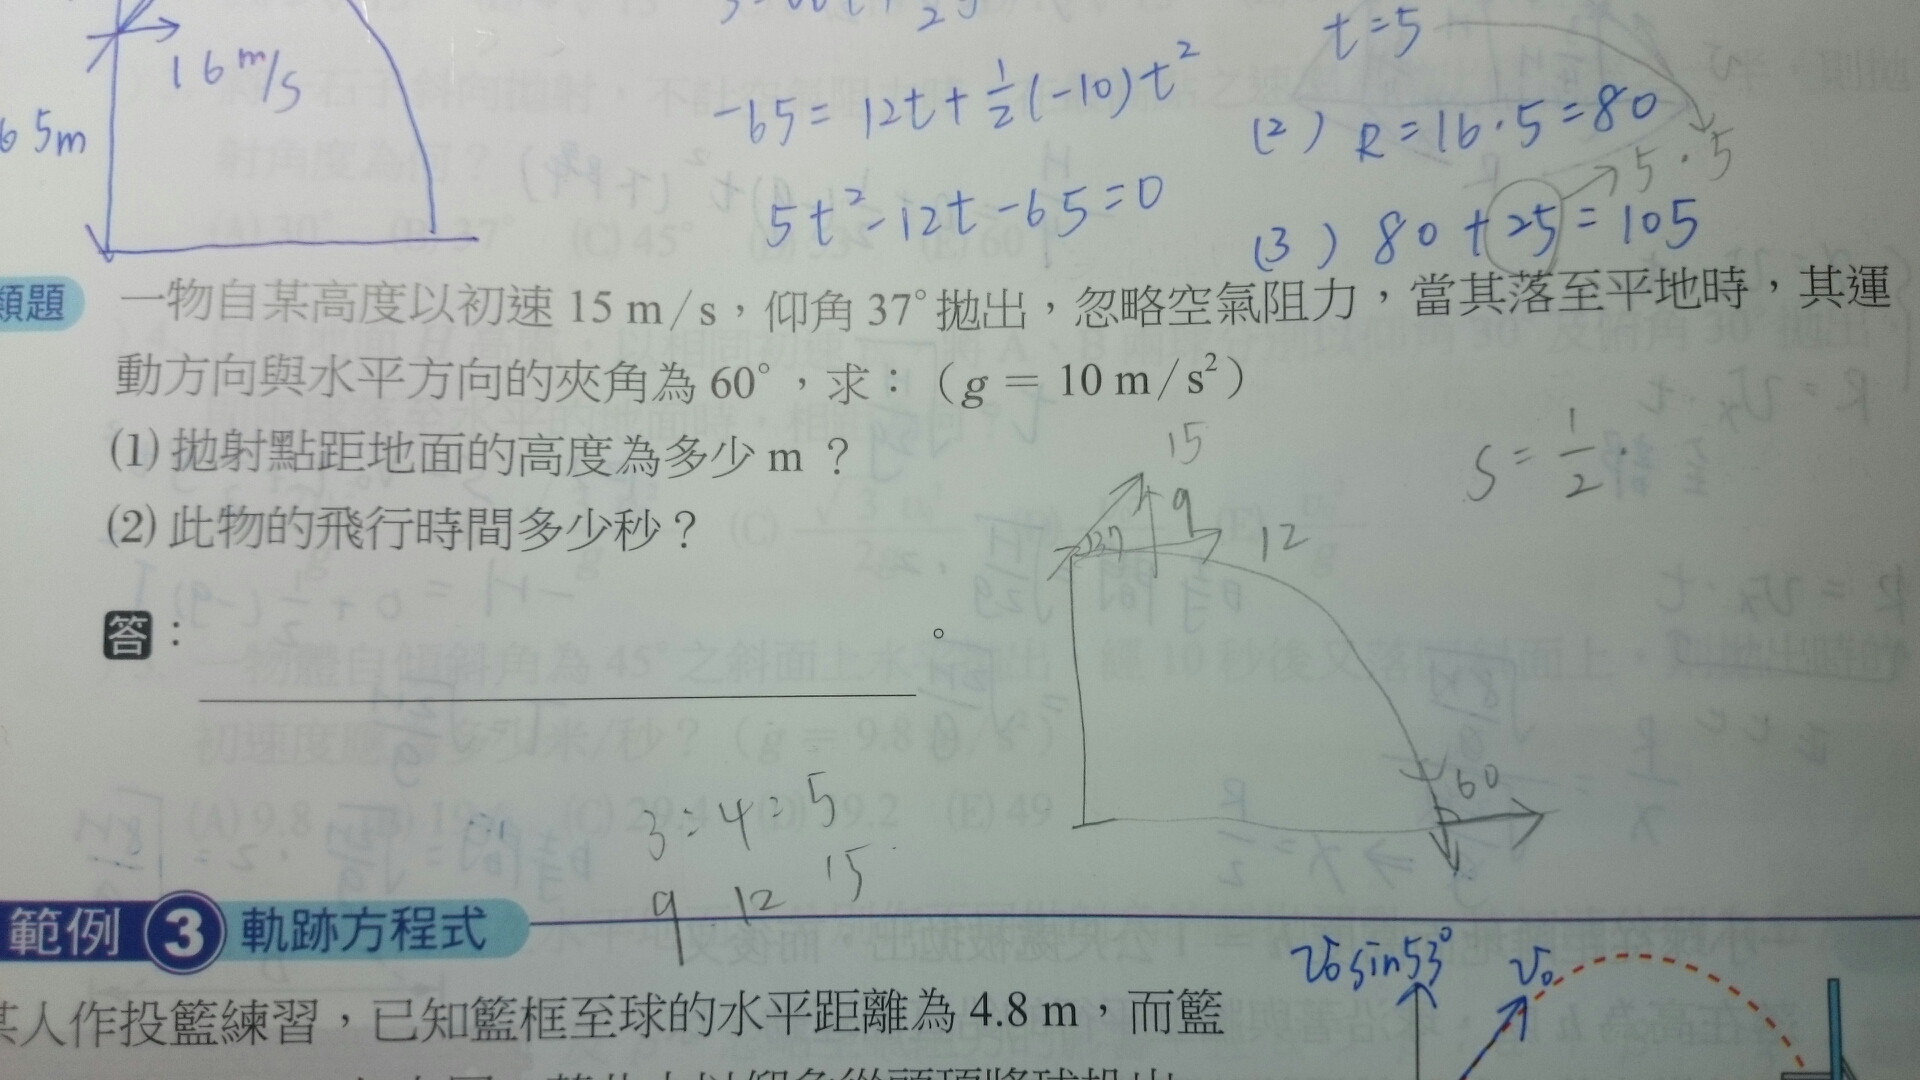 16 m/s
65m
-65 = 12t + 1/2 (-10)t²
5t² - 12t - 65 = 0
t = 5
(2) R = 16 · 5 = 80
5 · 5
(3) 80 + 25 = 105
類題 一物自某高度以初速 15 m/s，仰角 37° 拋出，忽略空氣阻力，當其落至平地時，其運
動方向與水平方向的夾角為 60°，求：（g = 10 m/s²）
(1) 拋射點距地面的高度為多少 m ？
(2) 此物的飛行時間多少秒？
15
9
37
12
S = 1/2 ·
60
答： 。
3 : 4 = 5
9 12 15
範例 3 軌跡方程式
v₀sin53°
v₀
某人作投籃練習，已知籃框至球的水平距離為 4.8 m，而籃